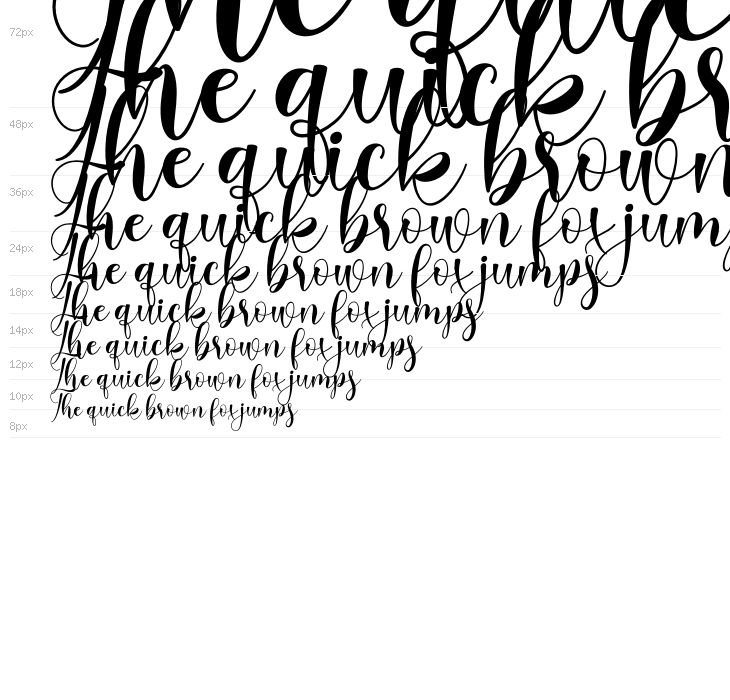 72px The quick
48px The quick br
36px The quick brown
24px The quick brown fox jum
18px The quick brown fox jumps
14px The quick brown fox jumps
12px The quick brown fox jumps
10px The quick brown fox jumps
8px The quick brown fox jumps